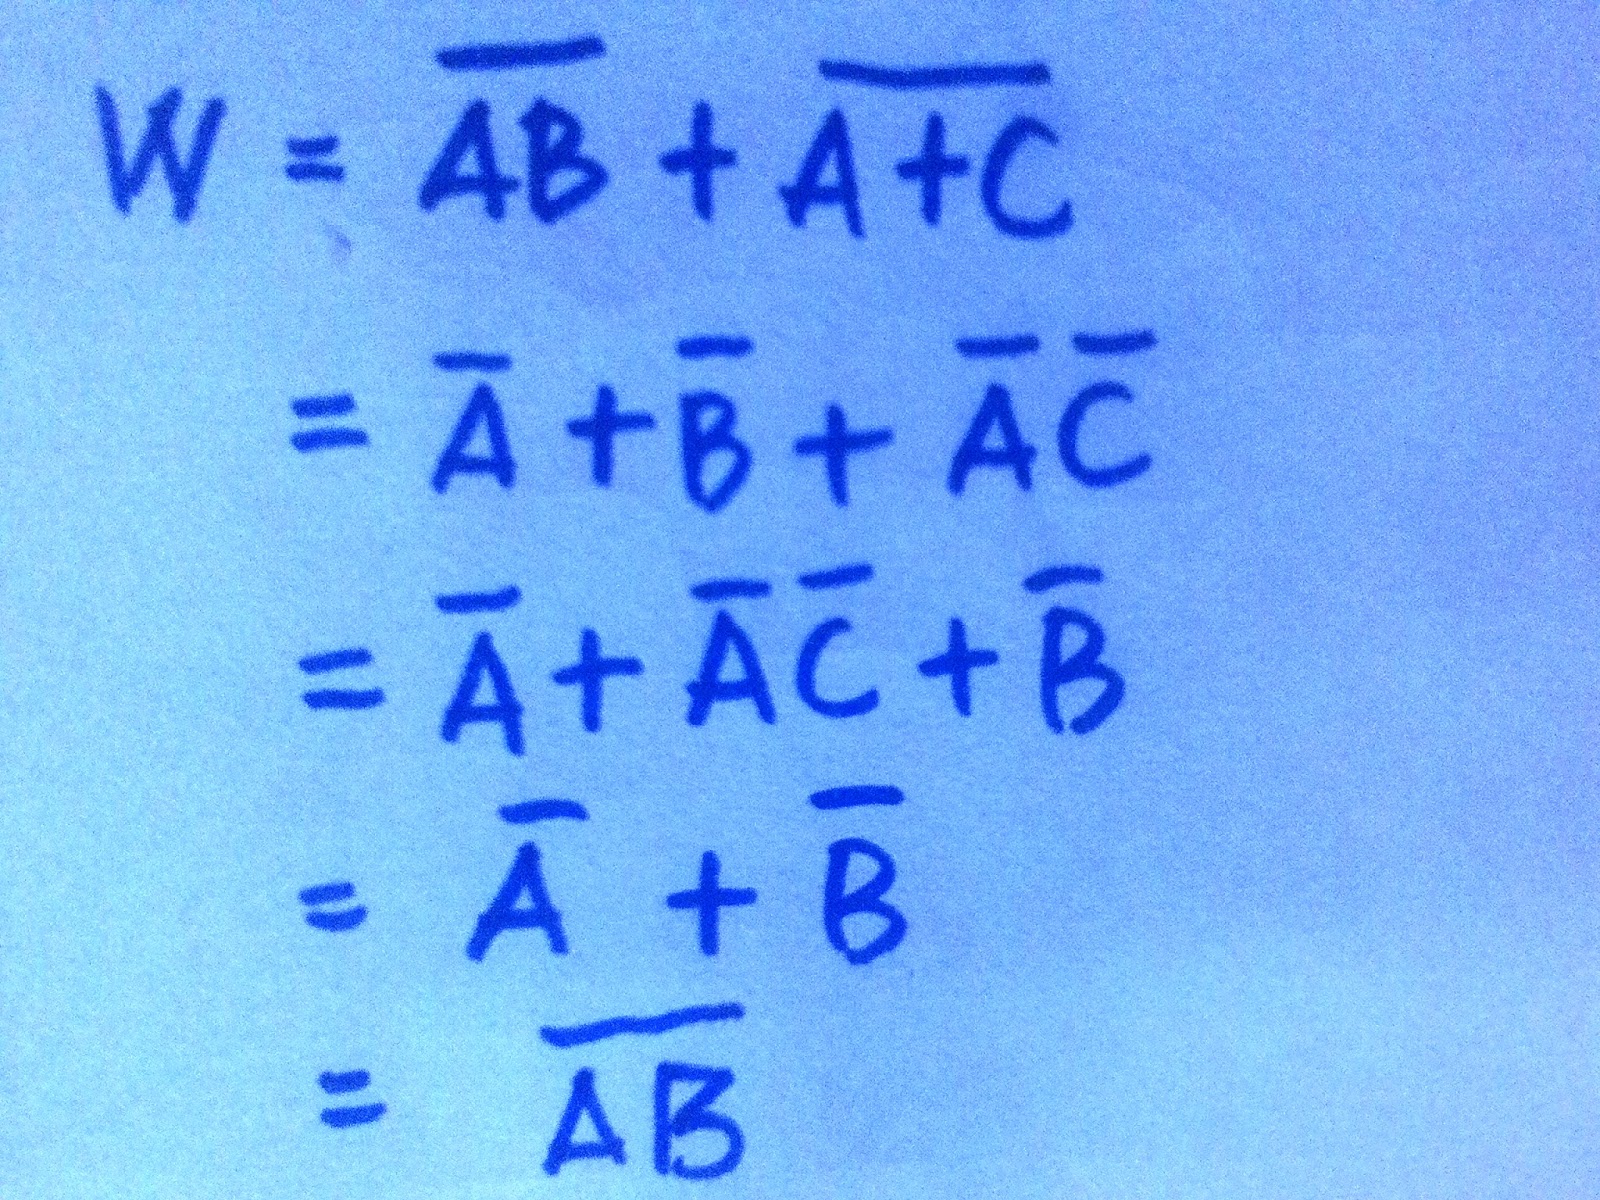 W = \overline{AB} + \overline{A+C}
= \overline{A} + \overline{B} + \overline{A} \overline{C}
= \overline{A} + \overline{A} \overline{C} + \overline{B}
= \overline{A} + \overline{B}
= \overline{AB}